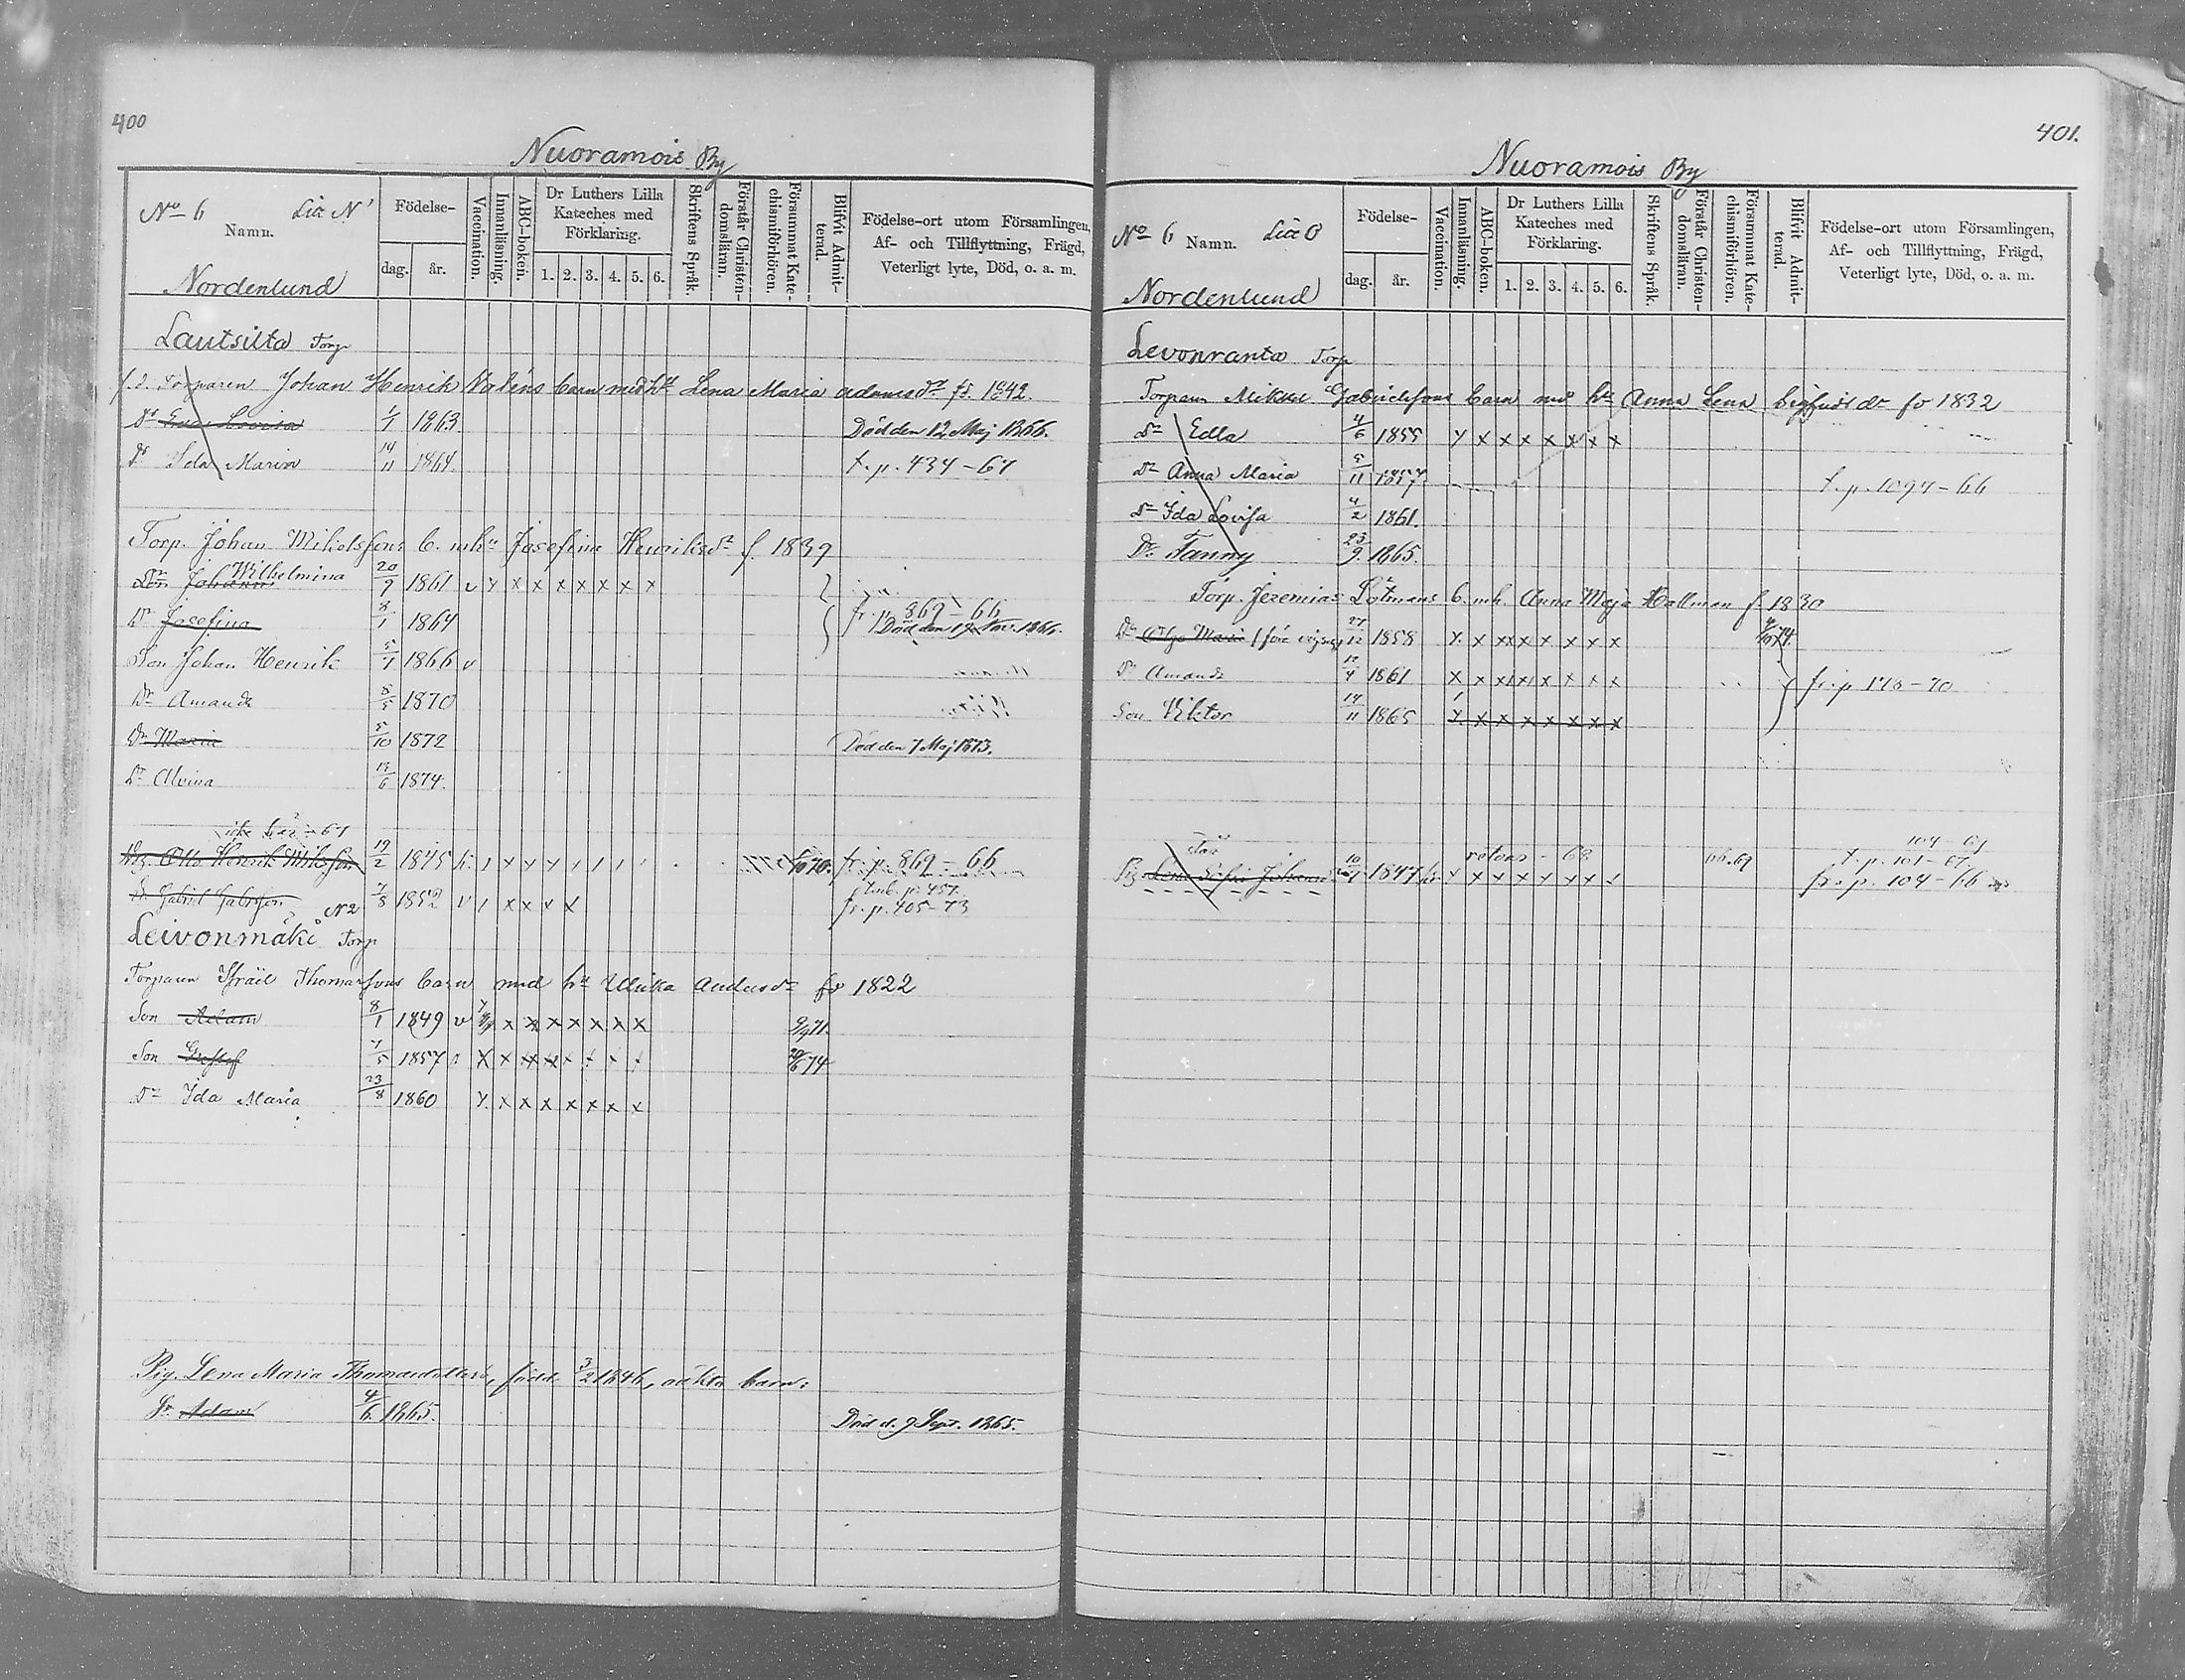 400
Nuoramois By
No 6 Litt N
Namn.
Födelse-
dag. år.
Vaccination.
Innanläsning.
ABC-boken.
Dr Luthers Lilla Kateches med Förklaring.
1. 2. 3. 4. 5. 6.
Skriftens Språk.
Förstår Christendomsläran.
Försummat Katechismiförhören.
Blifvit Admitterad.
Födelse-ort utom Församlingen, Af- och Tillflyttning, Frägd, Veterligt lyte, Död, o. a. m.
Nordenlund
Lautsilta Torp
f.d. Torparen Johan Henrik Nolens barn med h. Lena Maria Adamsdr fd. 1842.
Dr Eva Lovisa 1/1 1863 Död den 12 Maj 1866.
Dr Ida Maria 14/11 1864 t. p. 434-67
Torp. Johan Mikelssons b. m h. Josefina Henriksdr f. 1839
Wilhelmina
20/9 1861 v y x x x x x x x
Dr Josefina 8/1 1864 fr. p. 869-66 Död den 19 Nov. 1866.
Son Johan Henrik 5/1 1866 v
Dr Amanda 8/5 1870
Dr Maria 5/10 1872 Död den 7 Maj 1873.
Dr Alvina 19/6 1874.
icke här -67
Otto Henrik Mikelsson 19/2 1845 fr. p. 869-66
Inh. p. 457
Dr Gabriel 7/8 1852 v x x fr. p. 405-73
N2
Leivonmäki Torp
Torparen Israel Thomassons barn med h. Ulrika Andersdr fd 1822
Son Adam 8/1 1849 v x x x x x x x 9/71.
Son Gustaf 7/5 1857 x x x x 6/74
Dr Ida Maria 23/8 1860 y x x x x x x x
Pig. Lena Maria Thomasdotters, född 3/2 1846, oäkta barn:
Adam 4/6 1865. Död d. 9 Sept. 1865.
401.
Nuoramois By
No 6 Namn. Litt O
Födelse-
dag. år.
Vaccination.
Innanläsning.
ABC-boken.
Dr Luthers Lilla Kateches med Förklaring.
1. 2. 3. 4. 5. 6.
Skriftens Språk.
Förstår Christendomsläran.
Försummat Katechismiförhören.
Blifvit Admitterad.
Födelse-ort utom Församlingen, Af- och Tillflyttning, Frägd, Veterligt lyte, Död, o. a. m.
Nordenlund
Levonranta Torp
Torparen Mikkel Gabrielssons barn med h. Anna Lena Sigfridsdr fd 1832
Dr Edla 4/6 1855 y x x x x x x x
Dr Anna Maria 5/11 1857 t. p. 1094-66
Dr Ida Lovisa 4/2 1861.
Dr Fanny 23/9 1865.
Torp. Jeremias Lötmans b. m h. Anna Maja Hallman f. 1830
Dr Olga Maria 27/12 1858 y. x x x x x x x
Dr Amanda 12/4 1861 x x x x x x x x fr. p 178-70
Son Viktor 14/11 1865 y x x x x x x x
104-69
retour -68 t. p. 101-67
Pig Lena Sofia 1847 66.69 fr. p. 104-66